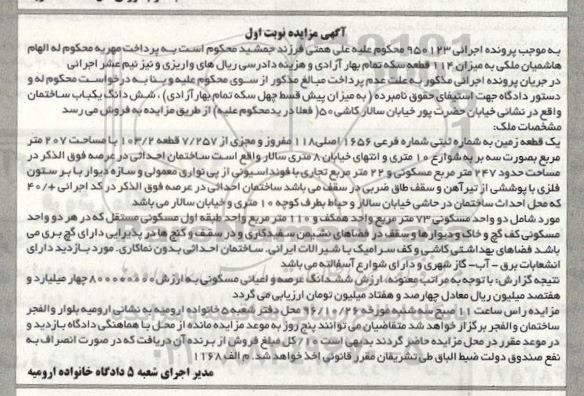 آگهی مزایده نوبت اول
به موجب پرونده اجرائی ۹۵۰۱۲۳ محکوم علیه علی همتی فرزند جمشید محکوم است به پرداخت مهریه محکوم له الهام
هاشمیان ملکی به میزان ۱۱۴ قطعه سکه تمام بهار آزادی و هزینه دادرسی ریال های واریزی و نیز نیم عشر اجرائی
در جریان پرونده اجرائی مذکور به علت عدم پرداخت مبالغ مذکور از سوی محکوم علیه و بنا به درخواست محکوم له و
دستور دادگاه جهت استیفای حقوق نامبرده ( به میزان پیش قسط چهل سکه تمام بهار آزادی ) ، شش دانگ یکباب ساختمان
واقع در نشانی خیابان حضرت پور خیابان سالار کاشی ۵۰( فعلا در ید محکوم علیه) از طریق مزایده به فروش می رسد
مشخصات ملک:
یک قطعه زمین به شماره ثبتی شماره فرعی ۱۶۵۶ اصلی ۱۱۸ مفروز و مجزی از ۷/۲۵۷ قطعه ۱۰۳/۲ با مساحت ۲۰۷ متر
مربع بصورت سه بر به شوارع ۱۰ متری و انتهای خیابان ۸ متری سالار واقع است ساختمان احداثی در عرصه فوق الذکر در
مساحت حدود ۲۴۷ متر مربع مسکونی و ۲۲ متر مربع تجاری با فونداسیونی از پی نواری معمولی و سازه دیوار با بر ستون
فلزی با پوششی از تیرآهن و سقف طاق ضربی در سقف می باشد ساختمان احداثی در عرصه فوق الذکر در کد اجرائی ۴۰/+
که محل احداث ساختمان در حاشی خیابان سالار و حیاط بطرف کوچه ۱۰ متری و خیابان سالار می باشد
مورد شامل دو واحد مسکونی ۷۳ متر مربع واحد همکف و ۱۱۰ متر مربع واحد طبقه اول مسکونی مستقل که در هر دو واحد
مسکونی کف گچ و خاک و دیوارها و سقف در فضاهای نشیمن سفیدکاری و در سقف و کنج ها در پذیرایی دارای گچ بری می
باشد فضاهای بهداشتی کاشی و کف سرامیک با شیرالات ایرانی. ساختمان احداثی بدون نماکاری. مورد بازدید دارای
انشعابات برق - آب- گاز شهری و دارای شوارع آسفالته می باشد
نتیجه گزارش: با توجه به مراتب معنونه، ارزش ششدانگ عرصه و اعیانی مسکونی به ارزش چهار میلیارد و
هفتصد میلیون ریال معادل چهارصد و هفتاد میلیون تومان ارزیابی می گردد
مزایده راس ساعت ۱۱ صبح سه شنبه مورخه ۹۶/۱۰/۲۶ محل دفتر شعبه ۵ خانواده ارومیه به نشانی ارومیه بلوار والفجر
ساختمان والفجر برگزار خواهد شد متقاضیان می توانند پنج روز به موعد مزایده مانده از محل با هماهنگی دادگاه بازدید و
در موعد مقرر در محل مزایده حاضر گردند بدیهی است ۱۰٪ کل مبلغ فروش از برنده آن دریافت که در صورت انصراف به
نفع صندوق دولت ضبط الباق طی تشریفان مقرر قانونی اخذ خواهد شد. م الف ۱۱۶۸
مدیر اجرای شعبه ۵ دادگاه خانواده ارومیه